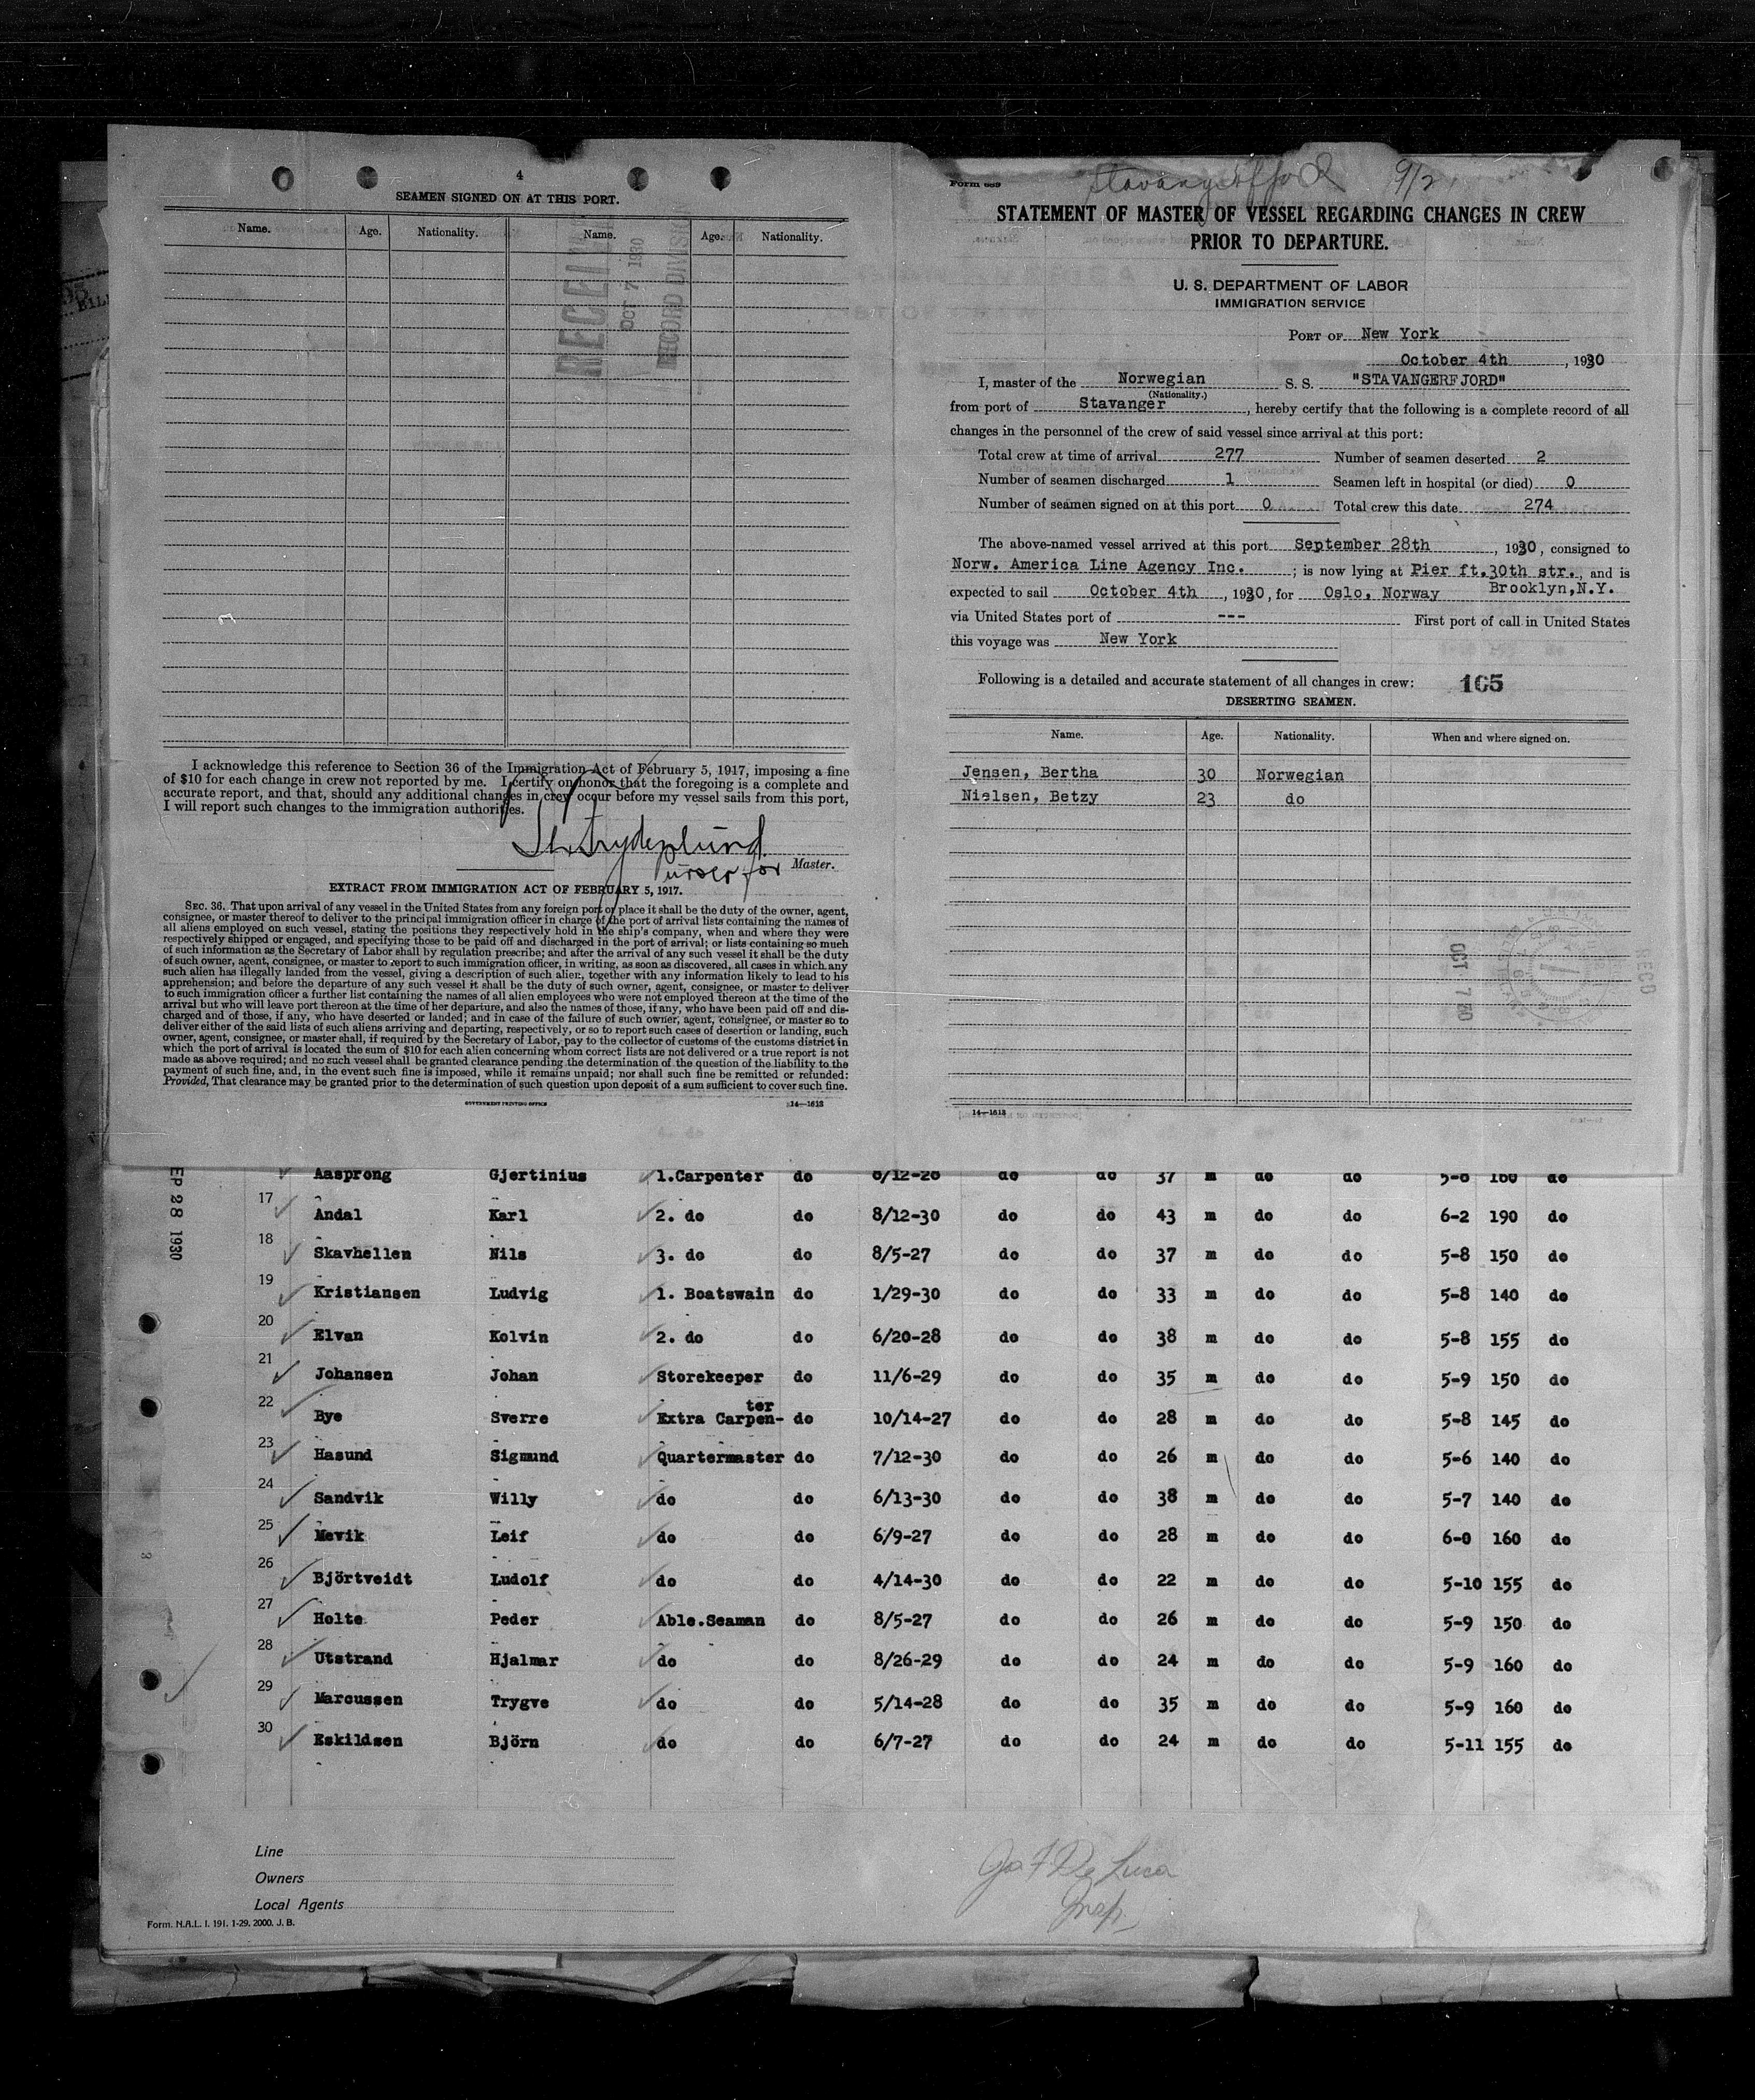 4
SEAMEN SIGNED ON AT THIS PORT.
Name. Age. Nationality. Name. Age. Nationality.
RECEIVED
OCT 7 1930
RECORD DIVISION
I acknowledge this reference to Section 36 of the Immigration Act of February 5, 1917, imposing a fine
of $10 for each change in crew not reported by me. I certify on honor that the foregoing is a complete and
accurate report, and that, should any additional changes in crew occur before my vessel sails from this port,
I will report such changes to the immigration authorities.
Purser for Master.
EXTRACT FROM IMMIGRATION ACT OF FEBRUARY 5, 1917.
SEC. 36. That upon arrival of any vessel in the United States from any foreign port or place it shall be the duty of the owner, agent,
consignee, or master thereof to deliver to the principal immigration officer in charge of the port of arrival lists containing the names of
all aliens employed on such vessel, stating the positions they respectively hold in the ship's company, when and where they were
respectively shipped or engaged, and specifying those to be paid off and discharged in the port of arrival; or lists containing so much
of such information as the Secretary of Labor shall by regulation prescribe; and after the arrival of any such vessel it shall be the duty
of such owner, agent, consignee, or master to report to such immigration officer, in writing, as soon as discovered, all cases in which any
such alien has illegally landed from the vessel, giving a description of such alien, together with any information likely to lead to his
apprehension; and before the departure of any such vessel it shall be the duty of such owner, agent, consignee, or master to deliver
to such immigration officer a further list containing the names of all alien employees who were not employed thereon at the time of the
arrival but who will leave port thereon at the time of her departure, and also the names of those, if any, who have been paid off and dis-
charged and of those, if any, who have deserted or landed; and in case of the failure of such owner, agent, consignee, or master so to
deliver either of the said lists of such aliens arriving and departing, respectively, or so to report such cases of desertion or landing, such
owner, agent, consignee, or master shall, if required by the Secretary of Labor, pay to the collector of customs of the customs district in
which the port of arrival is located the sum of $10 for each alien concerning whom correct lists are not delivered or a true report is not
made as above required; and no such vessel shall be granted clearance pending the determination of the question of the liability to the
payment of such fine, and, in the event such fine is imposed, while it remains unpaid; nor shall such fine be remitted or refunded:
Provided, That clearance may be granted prior to the determination of such question upon deposit of a sum sufficient to cover such fine.
GOVERNMENT PRINTING OFFICE 14—1613
Form 689 Stavangerfjord
STATEMENT OF MASTER OF VESSEL REGARDING CHANGES IN CREW
PRIOR TO DEPARTURE.
U. S. DEPARTMENT OF LABOR
IMMIGRATION SERVICE
PORT OF New York
October 4th, 1930
I, master of the Norwegian S. S. "STAVANGERFJORD"
(Nationality.)
from port of Stavanger, hereby certify that the following is a complete record of all
changes in the personnel of the crew of said vessel since arrival at this port:
Total crew at time of arrival 277 Number of seamen deserted 2
Number of seamen discharged 1 Seamen left in hospital (or died) 0
Number of seamen signed on at this port 0 Total crew this date 274
The above-named vessel arrived at this port September 28th, 1930, consigned to
Norw. America Line Agency Inc. ; is now lying at Pier ft.30th str., and is
expected to sail October 4th, 1930, for Oslo, Norway Brooklyn,N.Y.
via United States port of --- First port of call in United States
this voyage was New York
Following is a detailed and accurate statement of all changes in crew: 105
DESERTING SEAMEN.
Name. Age. Nationality. When and where signed on.
Jensen, Bertha 30 Norwegian
Nielsen, Betzy 23 do
OCT 7 30
RECD
14—1613
EP 28 1930
Aasprong Gjertinius 1.Carpenter do 8/12-28 do do 37 m do do 5-8 160 do
17 Andal Karl 2. do do 8/12-30 do do 43 m do do 6-2 190 do
18 Skavhellen Nils 3. do do 8/5-27 do do 37 m do do 5-8 150 do
19 Kristiansen Ludvig 1. Boatswain do 1/29-30 do do 33 m do do 5-8 140 do
20 Elvan Kolvin 2. do do 6/20-28 do do 38 m do do 5-8 155 do
21 Johansen Johan Storekeeper do 11/6-29 do do 35 m do do 5-9 150 do
22 Bye Sverre Extra Carpen-ter do 10/14-27 do do 28 m do do 5-8 145 do
23 Hasund Sigmund Quartermaster do 7/12-30 do do 26 m do do 5-6 140 do
24 Sandvik Willy do do 6/13-30 do do 38 m do do 5-7 140 do
25 Mevik Leif do do 6/9-27 do do 28 m do do 6-0 160 do
26 Björtveidt Ludolf do do 4/14-30 do do 22 m do do 5-10 155 do
27 Holte Peder Able.Seaman do 8/5-27 do do 26 m do do 5-9 150 do
28 Utstrand Hjalmar do do 8/26-29 do do 24 m do do 5-9 160 do
29 Marcussen Trygve do do 5/14-28 do do 35 m do do 5-9 160 do
30 Eskildsen Björn do do 6/7-27 do do 24 m do do 5-11 155 do
Line
Owners
Local Agents
Form. N.A.L. I. 191. 1-29. 2000. J. B.
De Luca
Insp.